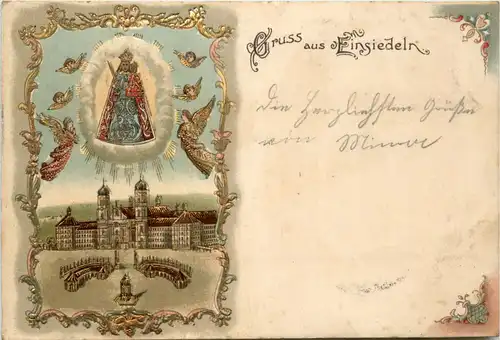 Gruss aus Einsiedeln
Die herzlichsten Grüße
von